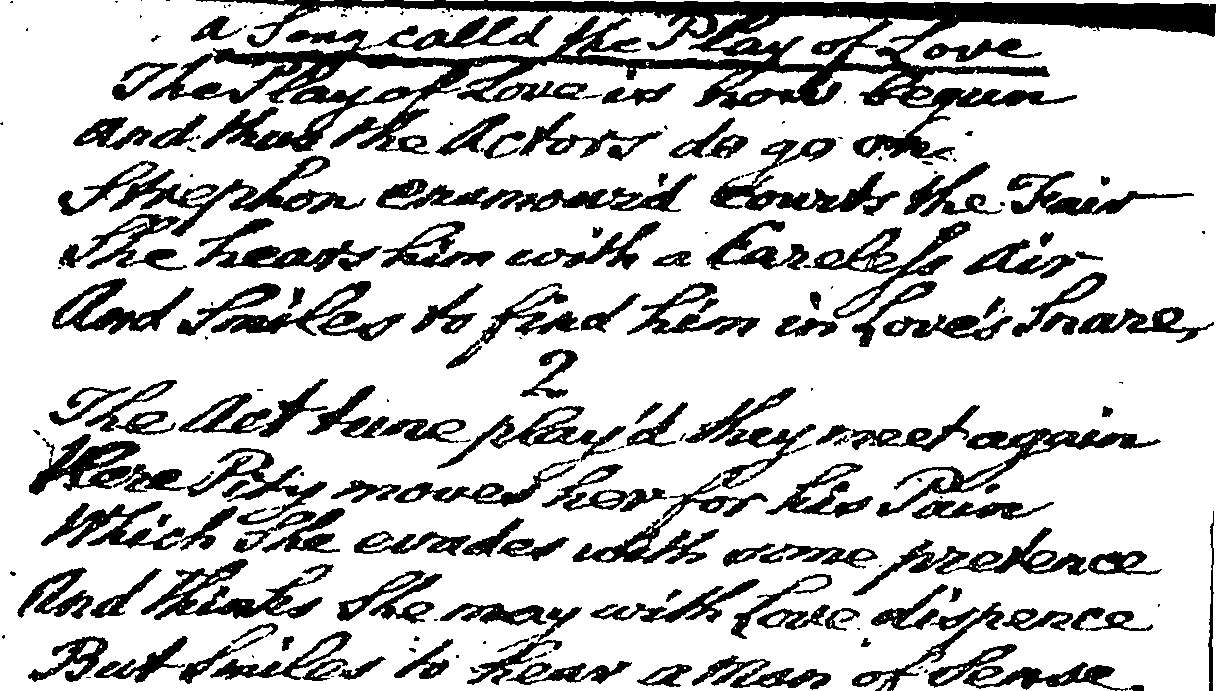 a Song calld the Play of Love
The Play of Love is now begun
And thus the Actors do go on
Strephon enamour'd Courts the Fair
She hears him with a Careless Air
And Smiles to find him in Love's Snare,
2
The Act tune play'd they meet again
Here Pity moves her for his Pain
Which She evades with some pretence
And thinks She may with Love dispence
But Smiles to hear a Man of Sense.